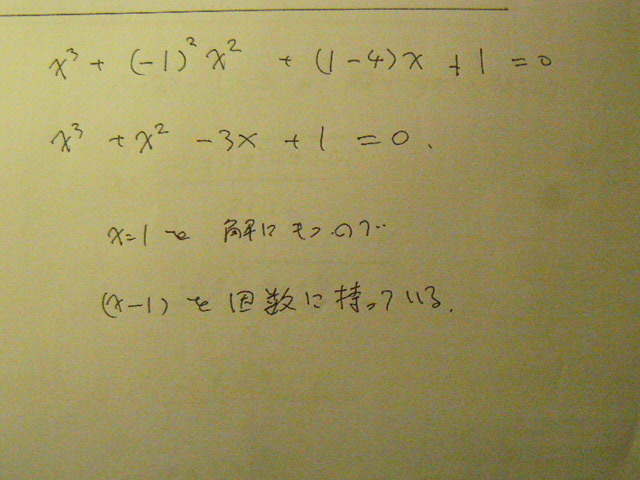 x³ + (-1)²x² + (1-4)x + 1 = 0
x³ + x² - 3x + 1 = 0.
x=1 を 解にもつので
(x-1) を因数に持っている.